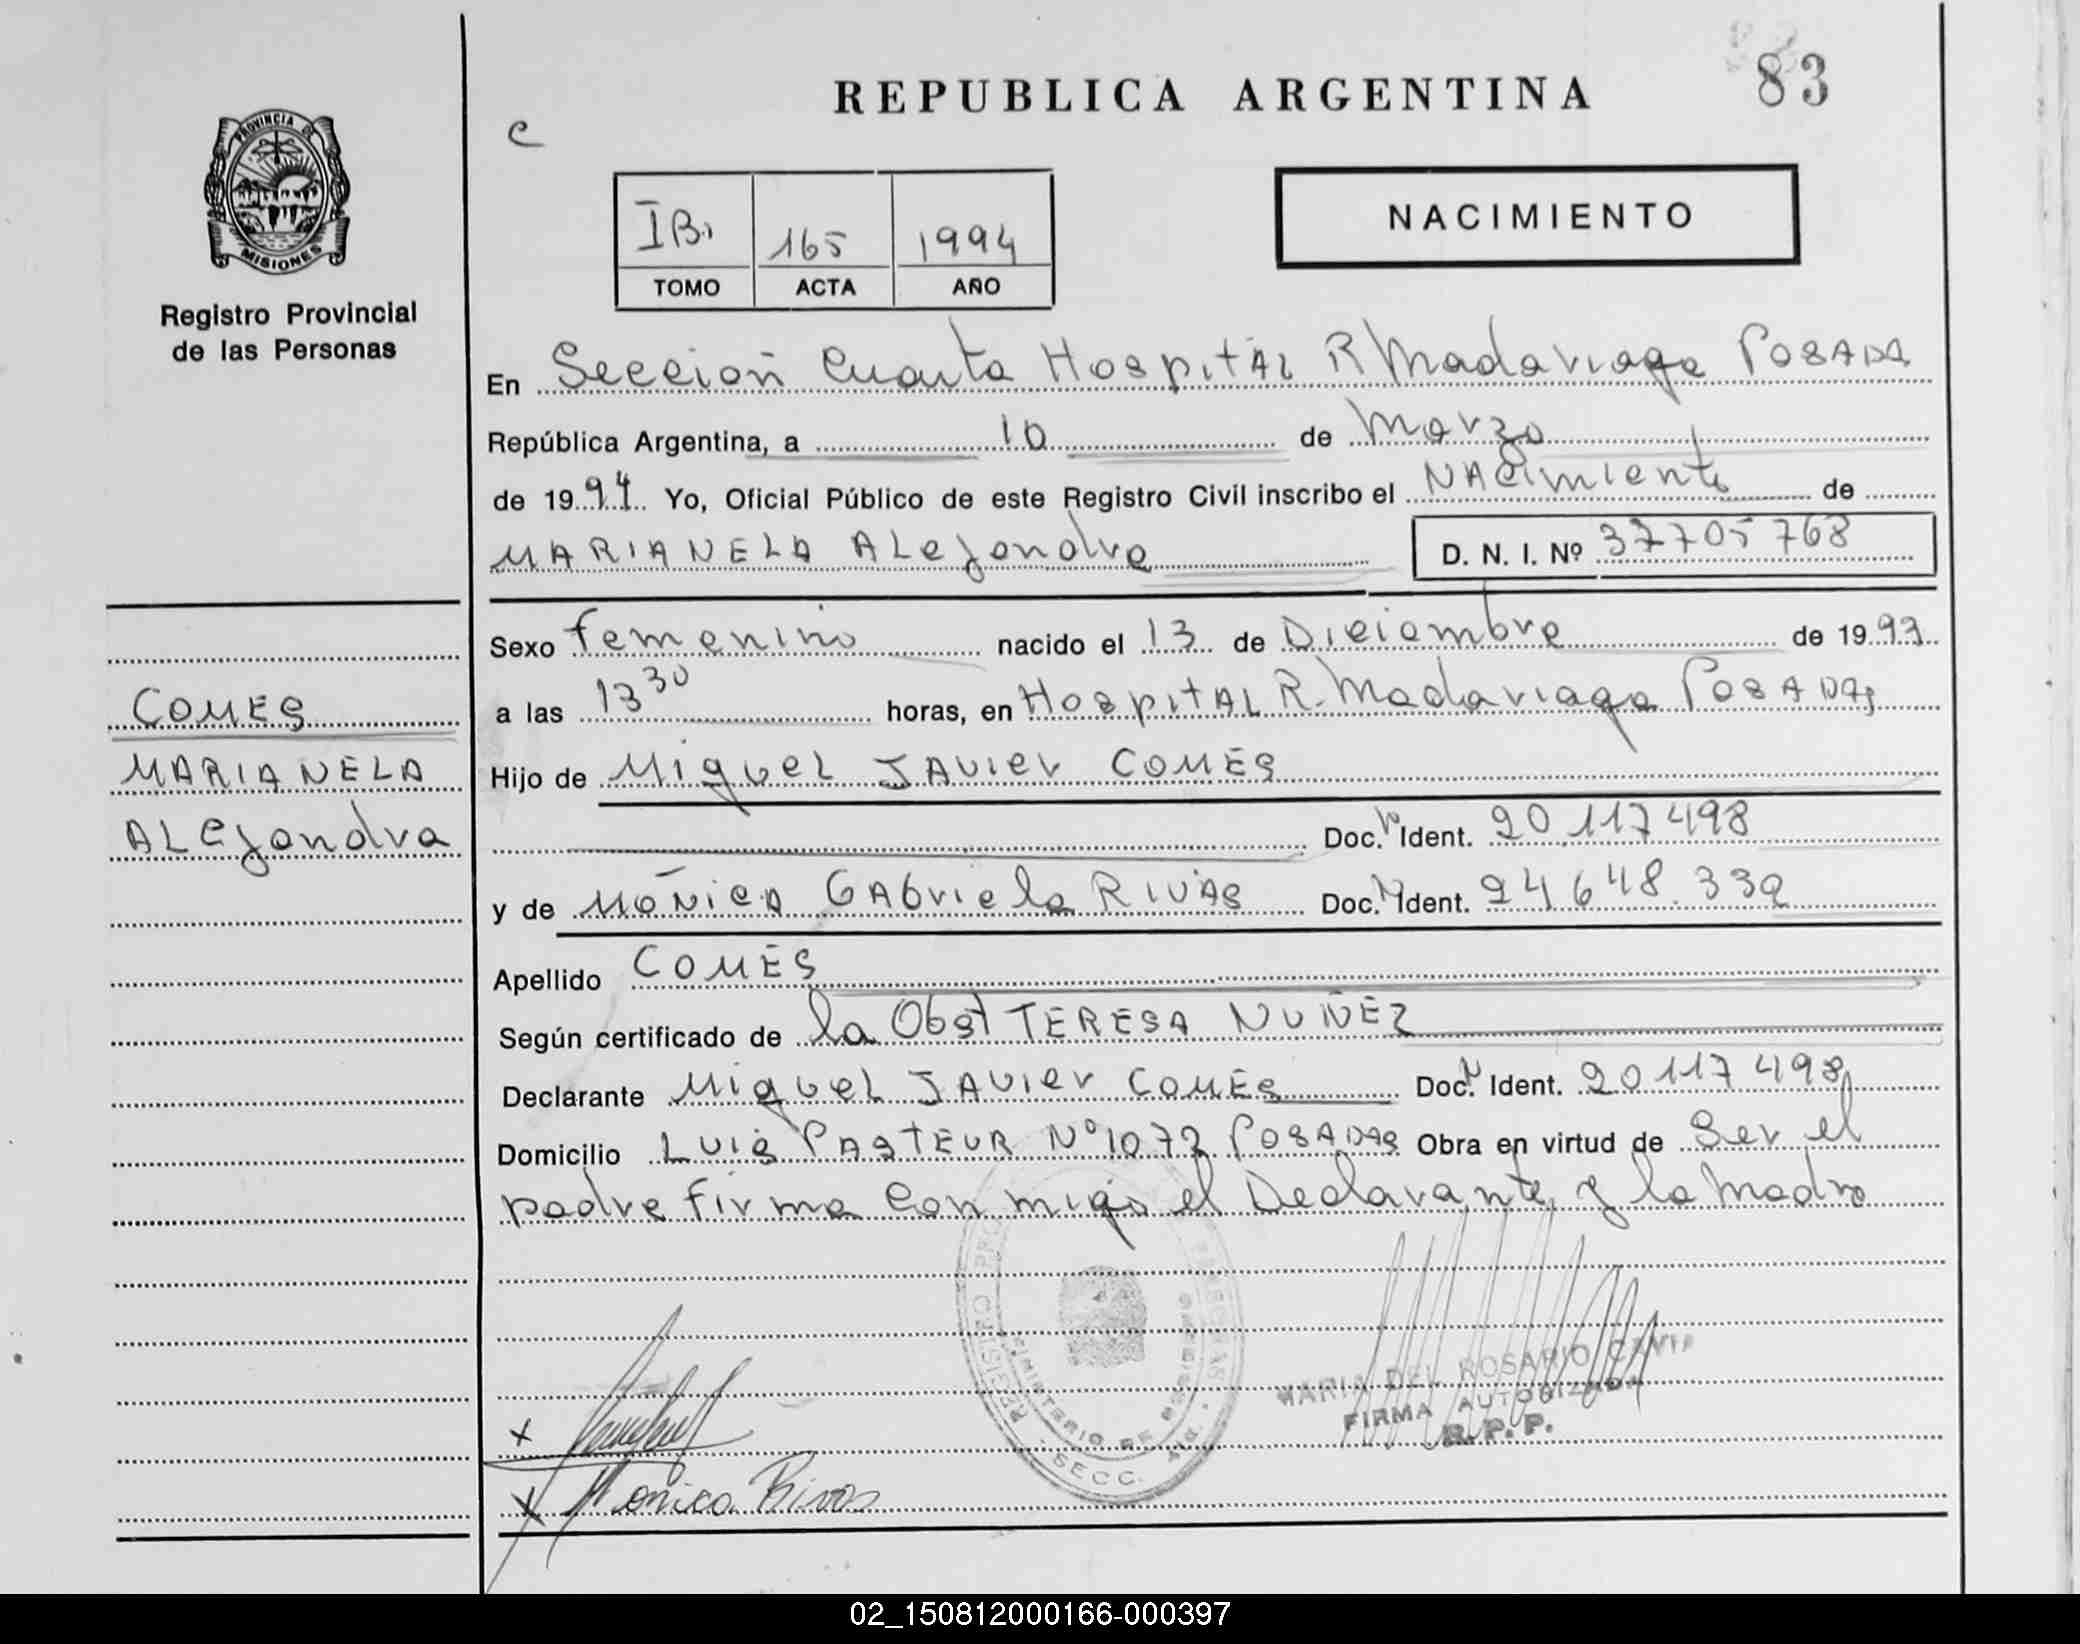 REPUBLICA ARGENTINA 83
PROVINCIA DE
MISIONES
Registro Provincial
de las Personas
C
IB. 165 1994
TOMO ACTA AÑO
NACIMIENTO
En Sección Cuarta Hospital R Madariaga POSADA
República Argentina, a 10 de Marzo
de 1994 Yo, Oficial Público de este Registro Civil inscribo el NAcimiento de
MARIANELA ALejandra D. N. I. Nº 37705768
Sexo femenino nacido el 13 de Diciembre de 1993
a las 13 30 horas, en HospitAL R. Madariaga POSADAS
Hijo de Miguel JAVier COMES
Doc. N Ident. 20.117498
y de MONICA GAbriela RIVAS Doc. N Ident. 24.648.332
Apellido COMES
Según certificado de la Obst TERESA NUÑEZ
Declarante Miguel JAVIer COMES Doc. N Ident. 20117498
Domicilio LUIS PASTEUR Nº 1072 POSADAS Obra en virtud de Ser el
padre firma Con migo el Declarante y la Madre
COMES
MARIANELA
ALejandra
MINISTERIO DE
SECC. 4ta
MARIA DEL ROSARIO
FIRMA AUTORIZADA
R.P.P.
x
x Monica Rivas
02_150812000166-000397